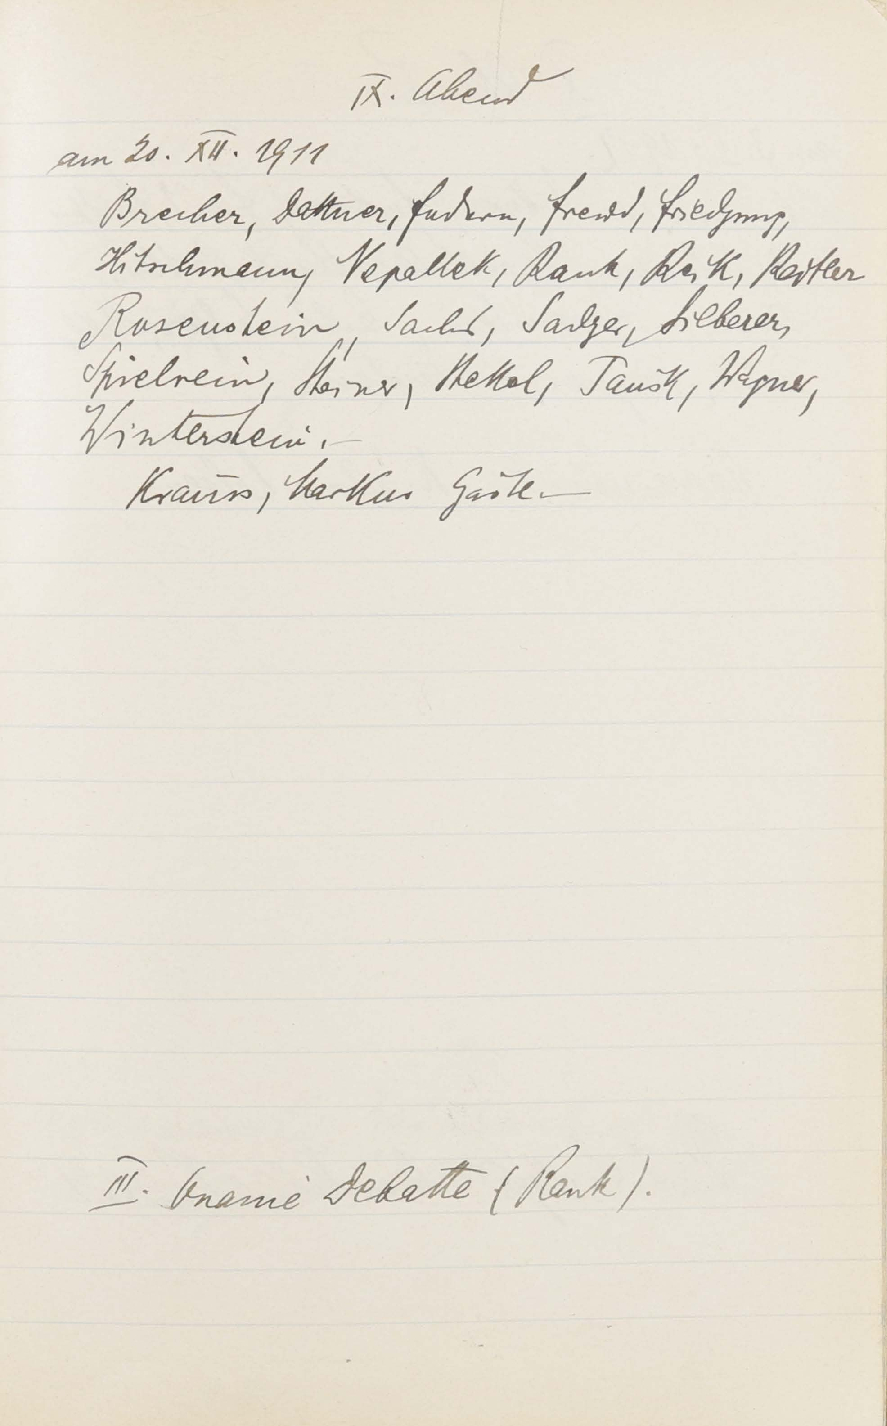 IX. Abend
am 20. XII. 1911
Brecher, Dattner, Federn, Freud, Friedjung,
Hitschmann, Nepallek, Rank, Reik, Reitler
Rosenstein, Sachs, Sadger, Silberer,
Spielrein, Steiner, Stekel, Tausk, Wagner,
Winterstein. —
Krauss, Markus Gäste. —
III. Onanie Debatte (Rank).